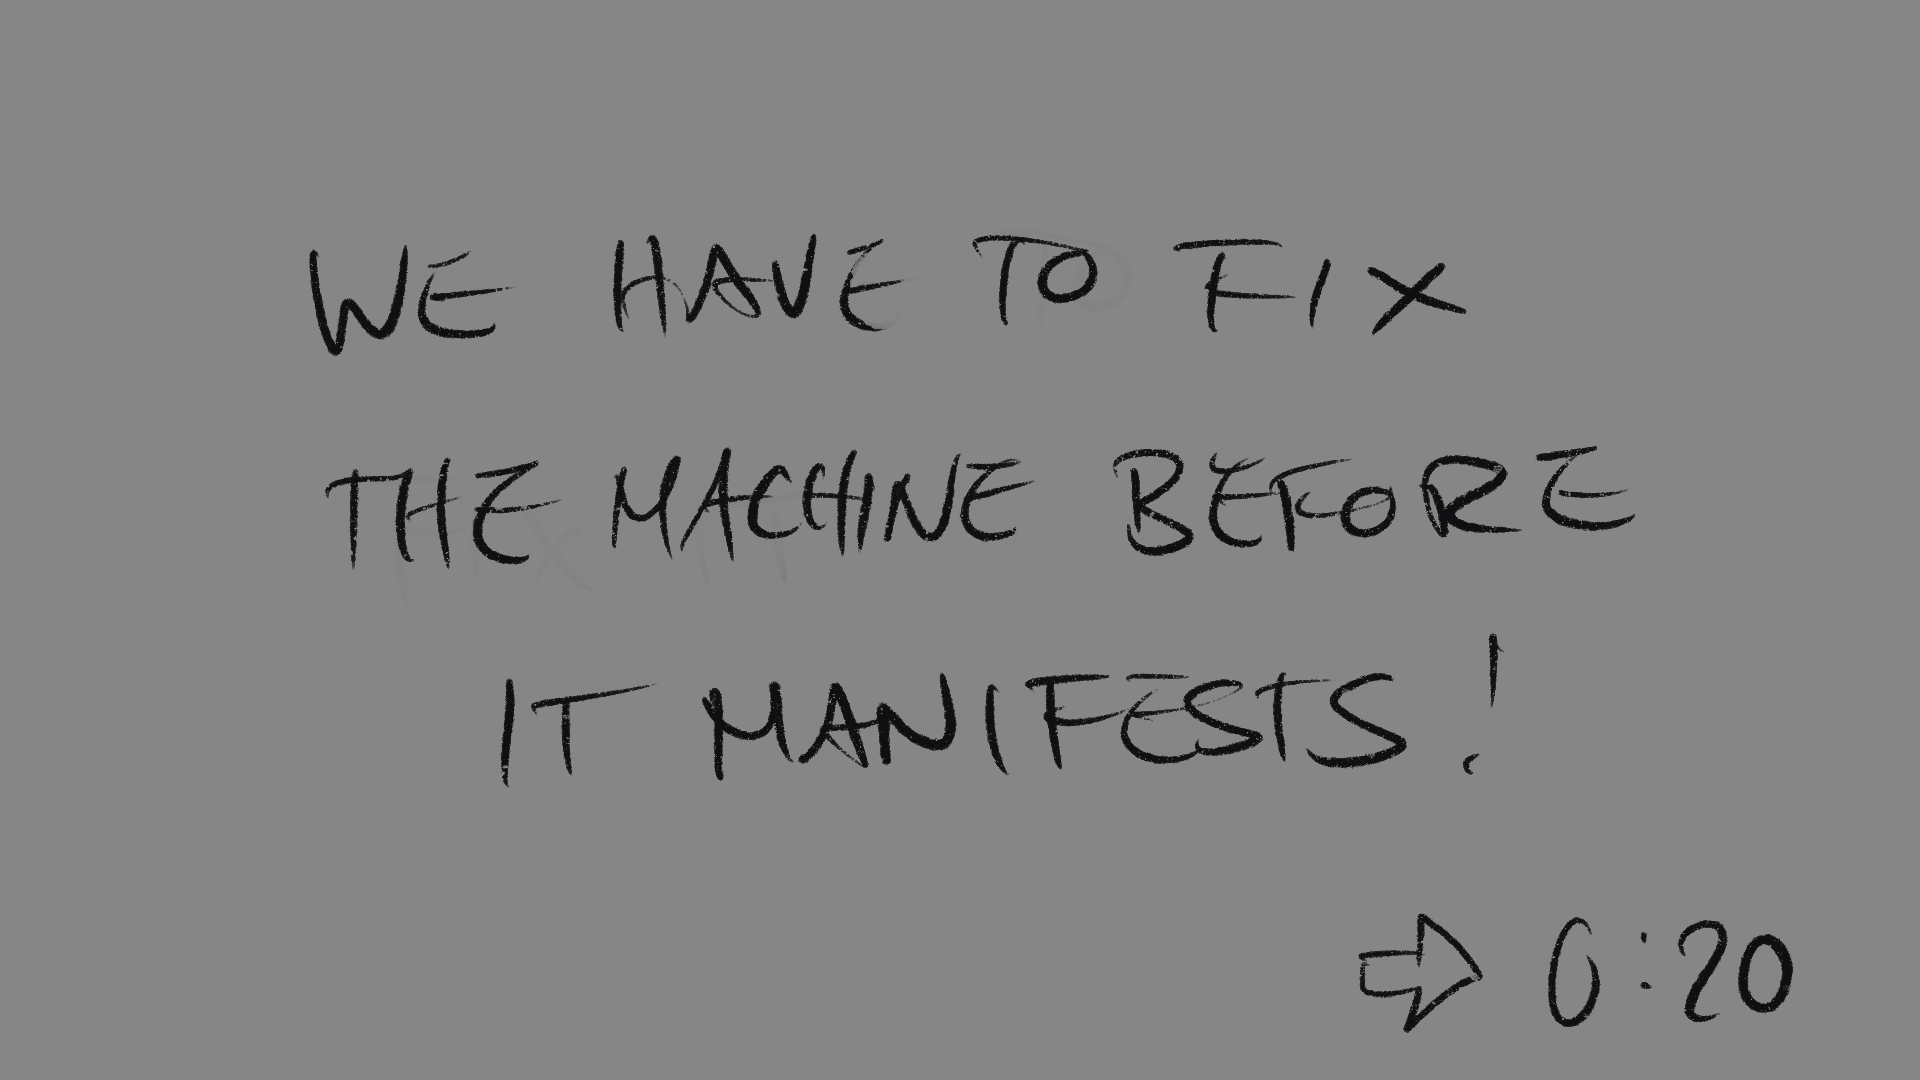 WE HAVE TO FIX
THE MACHINE BEFORE
IT MANIFESTS!
⇨ 0:20